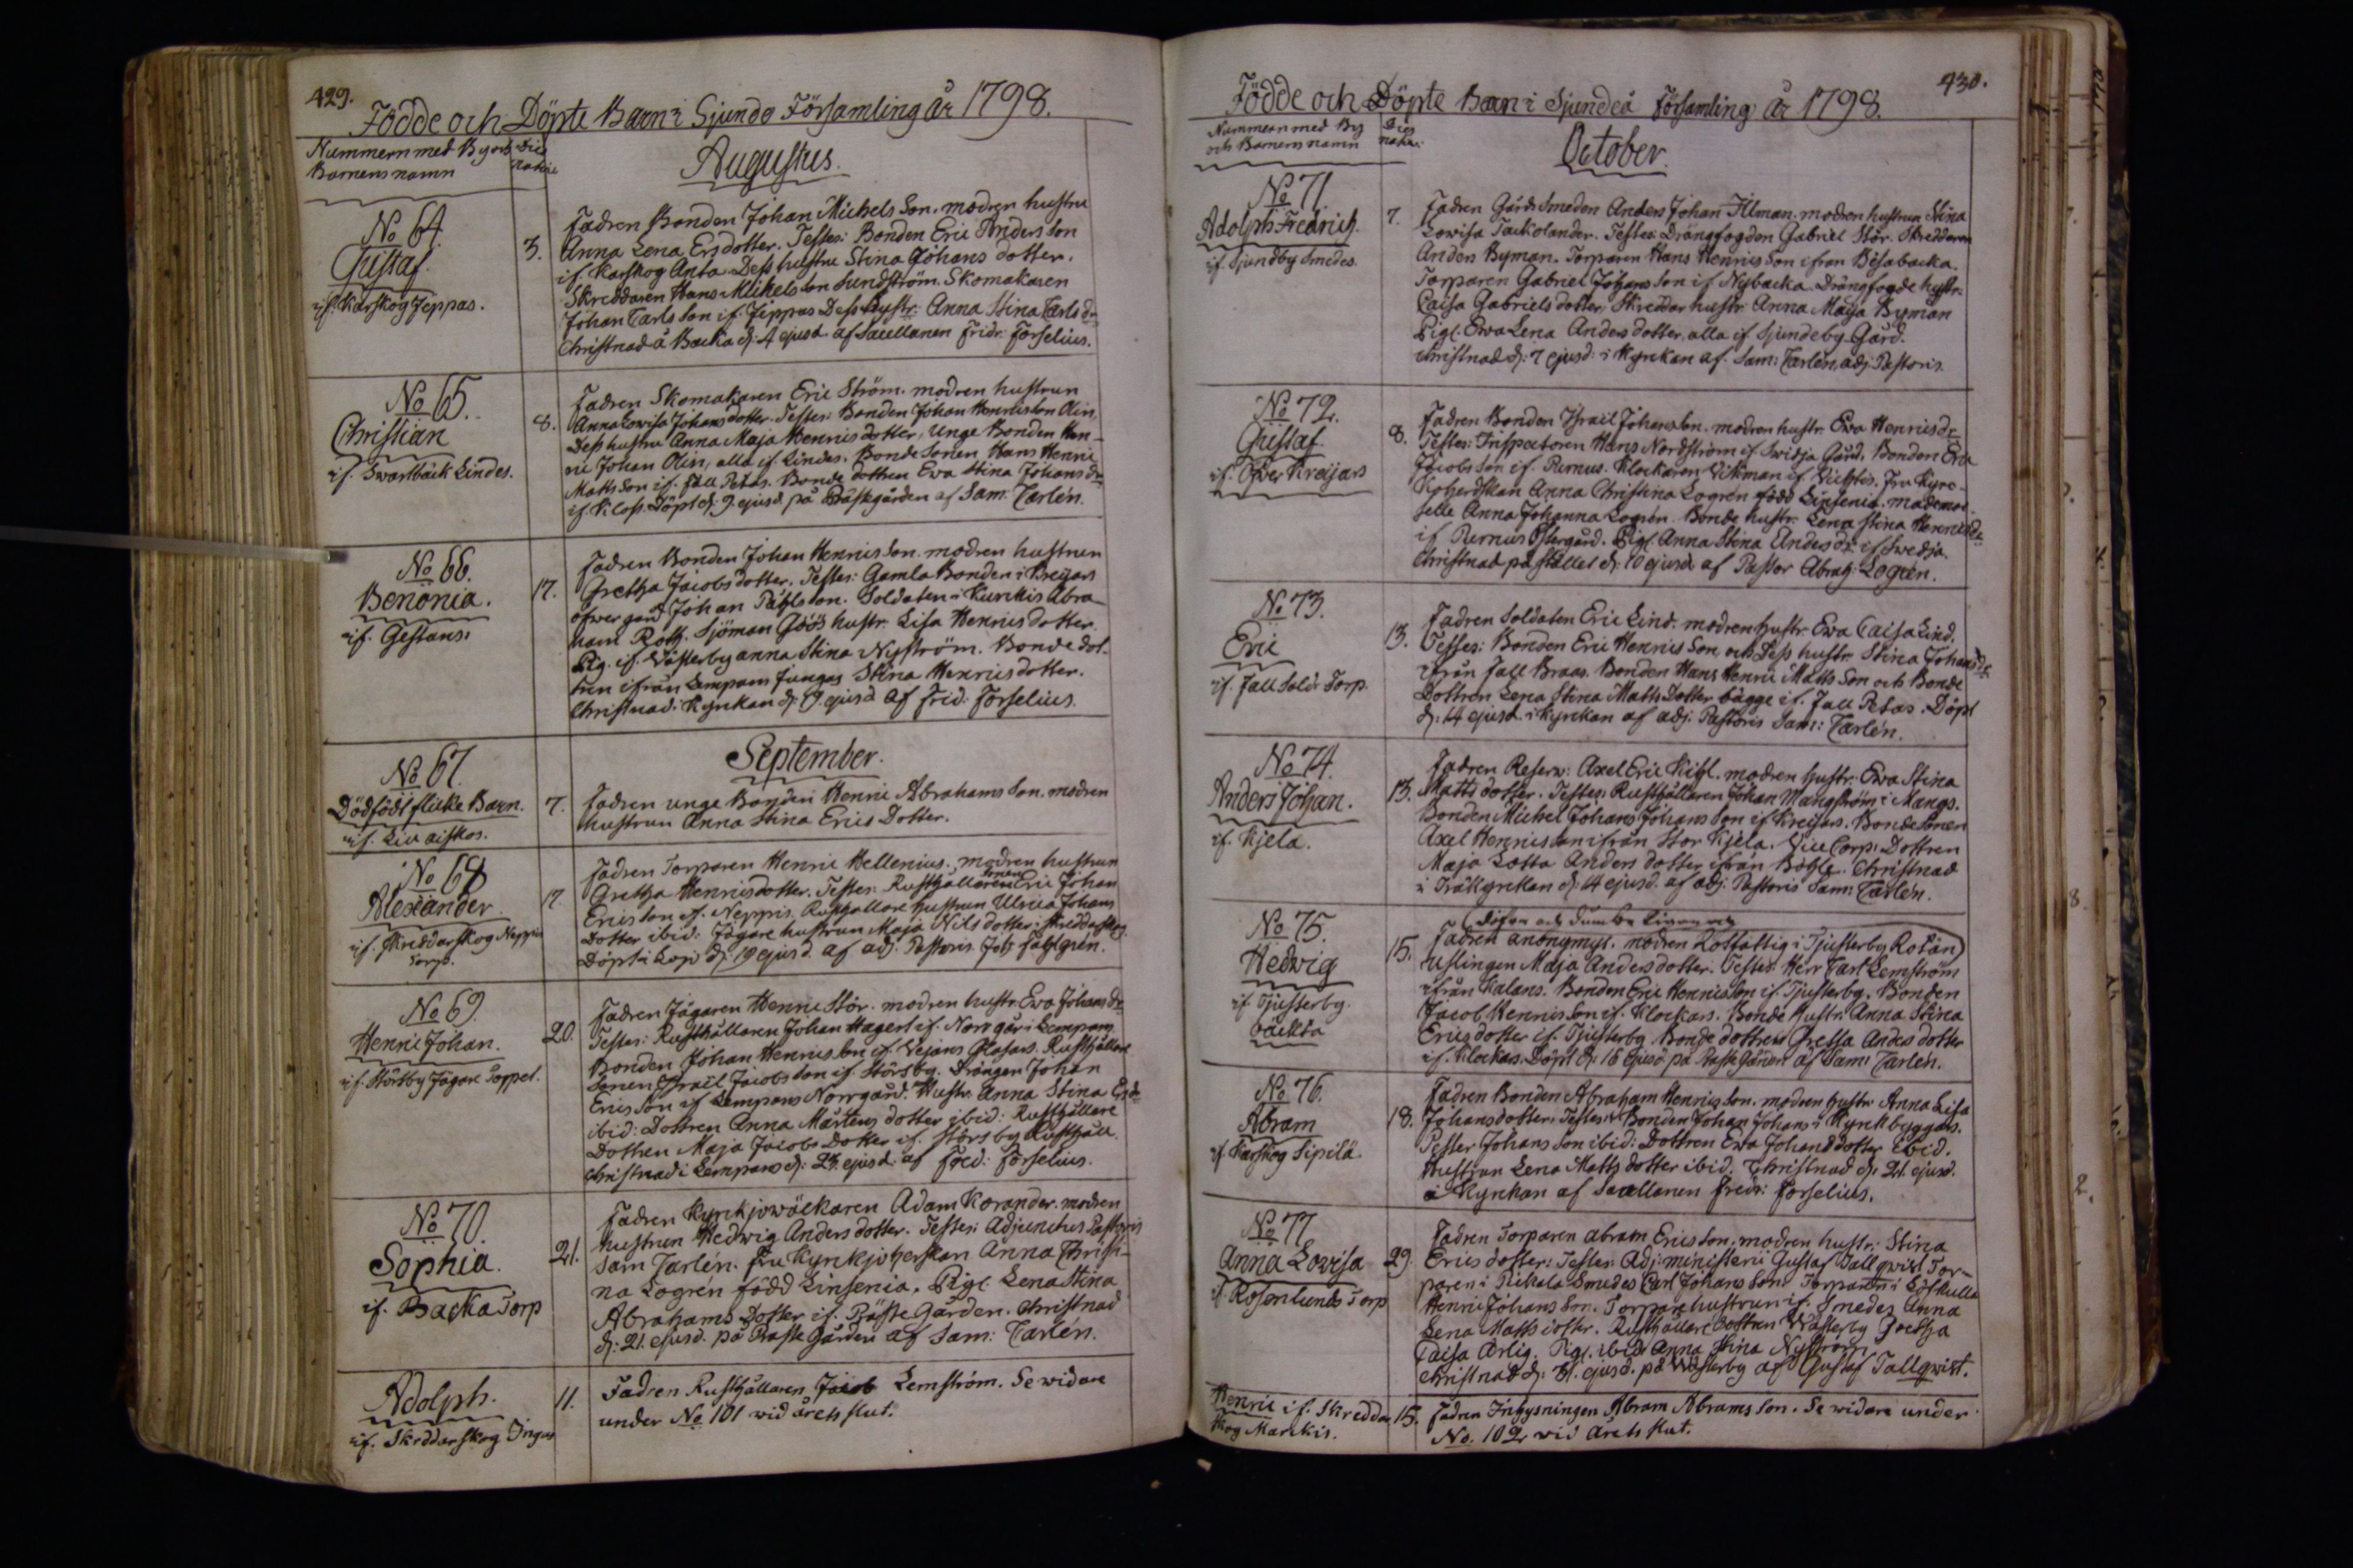 429.
Födde och Döpte Barn i Sjundo Församling år 1798.
Nummern med By och
Barnens namn
Dies
natai
Augustus.
No 64.
Gustaf.
if. Karskog Jeppas.
3.
Fadren Bonden Johan Michels Son. modren hustru
Anna Lena Ersdotter. Testes: Bonden Eric Anders Son
if. Karskog Anta. Dess hustru Stina Johans dotter.
Skreddaren Hans Michels son Sundström. Skomakaren
Johan Carls Son if. Jeppas Dess hustr: Anna Stina Carls dr
Christnad å Backa d: 4 ejusd. af Sacellanen Fridr: Forselius.
No 65.
Christian
if. Swartbäck Lindes.
8.
Fadren Skomakaren Eric Ström. modren hustrun
Anna Lowisa Johans dotter. Testes: Bonden Johan Henricsson Olin,
Dess hustru Anna Maja Henrics dotter, Unge Bonden Hen-
ric Johan Olin, alla if. Lindes. Bonde Sonen Hans Henric
Matts Son if. Fall Petas. Bonde dottren Ewa Stina Johans dr
if. Kloss. Döpt d: 9. ejusd. på Prästgården af Sam: Carlén.
No 66.
Benonia.
if. Gestans.
17.
Fadren Bonden Johan Henrics Son. modren hustrun
Gretha Jacobs dotter. Testes: Gamla Bonden i Kreijars
öfwergård Johan Påhlsson. Soldaten i Kurckis Abra-
ham Roth. Sjöman Göös hustr. Lisa Henrics dotter.
Pig. if. Wästerby Anna Stina Nyström. Bonde dot-
tren ifrån Lempans Jungas Stina Henrics dotter.
Christnad i Kyrckan d: 19. ejusd. af Frid: Forselius.
September.
No 67.
Dödfödt flicke Barn.
if. Liu
7.
Fadren unge Bonden Henric Abrahams Son. modren
hustrun Anna Stina Erics Dotter.
No 68
Alexander
if. Skreddarskog Neppis
Torp.
17
Fadren Torparen Henric Hellenius. modren hustrun
Gretha Henricsdotter. Testes: Rusthållaren Sonen Eric Johan
Ericsson if. Neppis. Rusthållare hustrun Ulrica Johans
Dotter ibid. Jägare hustrun Maja Nils dotter i Skreddarskog
Döpt i Lojo d: 19 ejusd. af adj. Pastoris Joh Sahlgrén.
No 69.
Henric Johan.
if. Störsby Jägare Torpet.
20.
Fadren Jägaren Henric Stör. modren hustr. Ewa Johans dr
Testes: Rusthållaren Johan Hagert if. Norrgår i Lempans
Bonden Johan Henrics Son if. Vejans Glasars. Rusthållare
Sonen Israil Jacobs Son if. Störsby. Drängen Johan
Erics Son if Lempans Norrgård. Hustr: Anna Stina Ersdr
ibid: Dottren Anna Mårtens dotter ibid: Rusthållare
Dottren Maja Jacobs Dotter if. Störsby Rusthåll.
Christnad i Lempans d: 23. ejusd. af Fred: Forselius.
No 70.
Sophia.
if. Backa Torp
21.
Fadren Kyrckjowäckaren Adam Korander. modren
hustrun Hedwig Anders dotter. Testes: Adjunctus Pastoris
Sam Carlén. Fru Kyrckjoherskan Anna Christi-
na Logrén född Linsenia. Pigl. Lena Stina
Abrahams Dotter if. Präste Gården. Christnad
d: 21. ejusd. på Präste Gården af Sam: Carlén.
Adolph.
if. Skreddarskog Ingas
11.
Fadren Rusthållaren Jacob Lemström. Se widare
under No 101 wid årets slut.
430.
Födde och Döpte Barn i Sjundeå Församling år 1798.
Nummern med By
och Barnens namn
Dies
nata:
October.
No 71.
Adolph Fredrich.
if. Sjundby Smedes.
7.
Fadren Gårds Smeden Anders Johan Filman. modren hustrun Stina
Lowisa Tackolander. Testes: Drängfogden Gabriel Stör. Skreddaren
Anders Byman. Torparen Hans Henrics Son ifrån Bösabacka.
Torparen Gabriel Johans Son if. Nybacka. Drängfogde hustr:
Caisa Gabriels dotter, Skreddar hustr: Anna Maija Byman
Pigl. Ewa Lena Anders dotter, alla if. Sjundeby Gård.
Christnad d: 7 ejusd: i Kyrckan af. Sam: Carlén, adj: Pastoris.
No 72.
Gustaf.
if. Öfver Kreijars
8.
Fadren Bonden Israil Johans Son. modren hustr. Ewa Henrics dr
Testes: Inspectoren Hans Nordström if. Swidja Gård. Bonden Eric
Jacobs Son if. Purnus. Klockaren Vikman if. Vichtis. Fru Kyrc-
koherdskan Anna Christina Logrén född Linsenia. mademoi-
selle Anna Johanna Logrén. Bonde hustr: Lena Stina Henrics dr
if Purnus Östergård. Pigl. Anna Stina Andes dr if. Swedja.
Christnad på stället d: 10 ejusd. af Pastor Abrah: Logrén.
No 73.
Eric
if. Fall Soldr Torp.
13.
Fadren Soldaten Eric Lind. modren hustr. Ewa Caisa Lind.
Testes: Bonden Eric Henrics Son och Dess hustr Stina Johans dr
ifrån Fall Braas. Bonden Hans Henric Matts Son och Bonde
Dottren Lena Stina Matts Dotter bägge if. Fall Petas. Döpt
d: 14 ejusd. i Kyrckan af adj: Pastoris Sam: Carlén.
No 74.
Anders Johan.
if. Kjela.
13.
Fadren Reserw: Axel Eric Kihl. modren hustr: Ewa Stina
Matts dotter. Testes: Rusthållaren Johan Mangström i Mangs.
Bonden Michel Johans Johans Son if. Kreijars. Bonde Sonen
Axel Henrics Son ifrån Stor Kjela. Vice Corp: Dottren
Maja Lotta Anders dotter ifrån Böhle. Christnad
i Träkyrckan d: 14 ejusd. af adj: Pastoris Sam: Carlén.
No 75.
Hedwig
if. Tjusterby
backa
15.
(döfva och dumba
Fadren anonymus. modren Rotfattig i Tjusterby Rotan)
Uslingen Maja Andersdotter. Testes: Herr Carl Lemström
ifrån Kalans. Bonden Eric Henrics Son if. Tjusterby. Bonden
Jacob Henrics Son if. Klockars. Bonde hustr: Anna Stina
Erics dotter if. Tjusterby Bonde dottren Gretha Andes dotter
if. Klockars. Döpt d: 16 ejusd på Präste Gården af Sam: Carlén.
No 76.
Abram
if Karskog Sipilä.
18.
Fadren Bonden Abraham Henrics Son. modren hustr: Anna Lisa
Johansdotter. Testes: Bonden Johan Johans i Kyrckbyggars.
Petter Johans Son ibid: Dottren Ewa Johansdotter ibid.
Hustrun Lena Matts dotter ibid. Christnad d: 21. ejusd.
i Kyrckan af Sacellanen Fridr: Forselius.
No 77
Anna Lowisa
if. Rosenlunds Torp
29.
Fadren Torparen Abram Erics Son. modren hustr: Stina
Erics dotter: Testes: Adj: ministerii Gustaf Tallqwist Tor-
paren i Pickala Smedes Carl Johans Son. Torparen i Löfkulla
Henric Johans Son. Torpare hustrun if. Smedes Anna
Lena Matts dotter. Rusthållare dottren Wästerby Gretha
Caisa Ärlig. Pigl. ibid Anna Stina Nyström.
Christnad d: 31. ejusd. på Wästerby af Gustaf Tallqwist.
Henric if. Skreddar
skog Marckis.
15.
Fadren Inhysningen Abram Abrams Son. Se widare under
No. 102 wid årets slut.